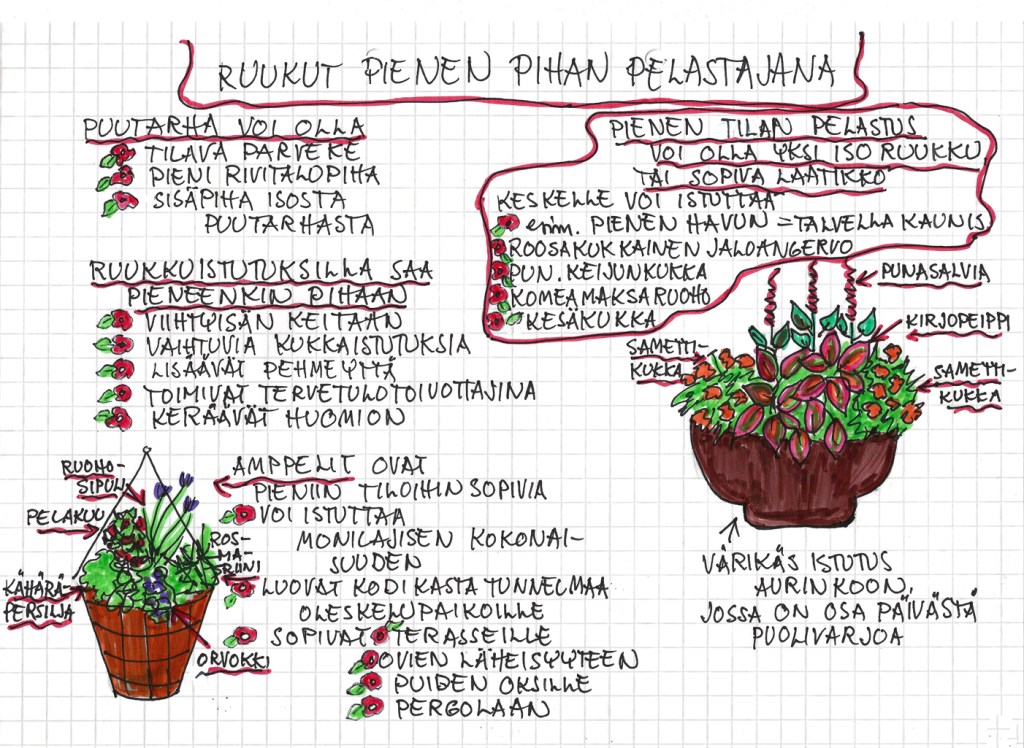 RUUKUT PIENEN PIHAN PELASTAJANA
PUUTARHA VOI OLLA
TILAVA PARVEKE
PIENI RIVITALOPIHA
SISÄPIHA ISOSTA
PUUTARHASTA
PIENEN TILAN PELASTUS
VOI OLLA YKSI ISO RUUKKU
TAI SOPIVA LAATIKKO
KESKELLE VOI ISTUTTAA
esim. PIENEN HAVUN = TALVELLA KAUNIS
ROOSAKUKKAINEN JALOANGERVO
PUN. KEIJUNKUKKA
KOMEAMAKSARUOHO
KESÄKUKKA
RUUKKUISTUTUKSILLA SAA
PIENEENKIN PIHAAN
VIIHTYISÄN KEITAAN
VAIHTUVIA KUKKAISTUTUKSIA
LISÄÄVÄT PEHMEYTTÄ
TOIMIVAT TERVETULOTOIVOTTAJINA
KERÄÄVÄT HUOMION
PUNASALVIA
KIRJOPEIPPI
SAMETTI-
KUKKA
SAMETTI-
KUKKA
VÄRIKÄS ISTUTUS
AURINKOON,
JOSSA ON OSA PÄIVÄSTÄ
PUOLIVARJOA
AMPPELIT OVAT
PIENIIN TILOIHIN SOPIVIA
VOI ISTUTTAA
MONILAJISEN KOKONAI-
SUUDEN
LUOVAT KODIKASTA TUNNELMAA
OLESKELUPAIKOILLE
SOPIVAT TERASSEILLE
OVIEN LÄHEISYYTEEN
PUIDEN OKSILLE
PERGOLAAN
RUOHO-
SIPULI
PELAKUU
ROS-
MA-
RIINI
KÄHÄRÄ-
PERSILJA
ORVOKKI